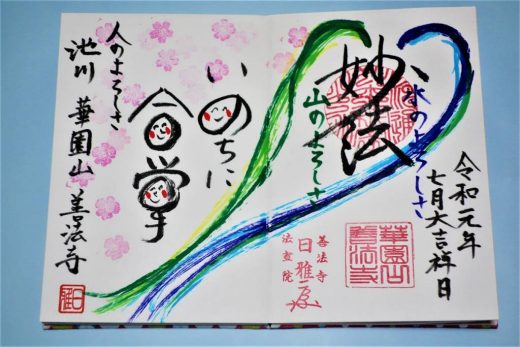 令和元年
七月大吉祥日
水のよろしさ
妙法
山のよろしさ
華園山
善法寺
善法寺
法立院
日雅
いのちに
合掌
人のよろしさ
池川 華園山 善法寺
日雅